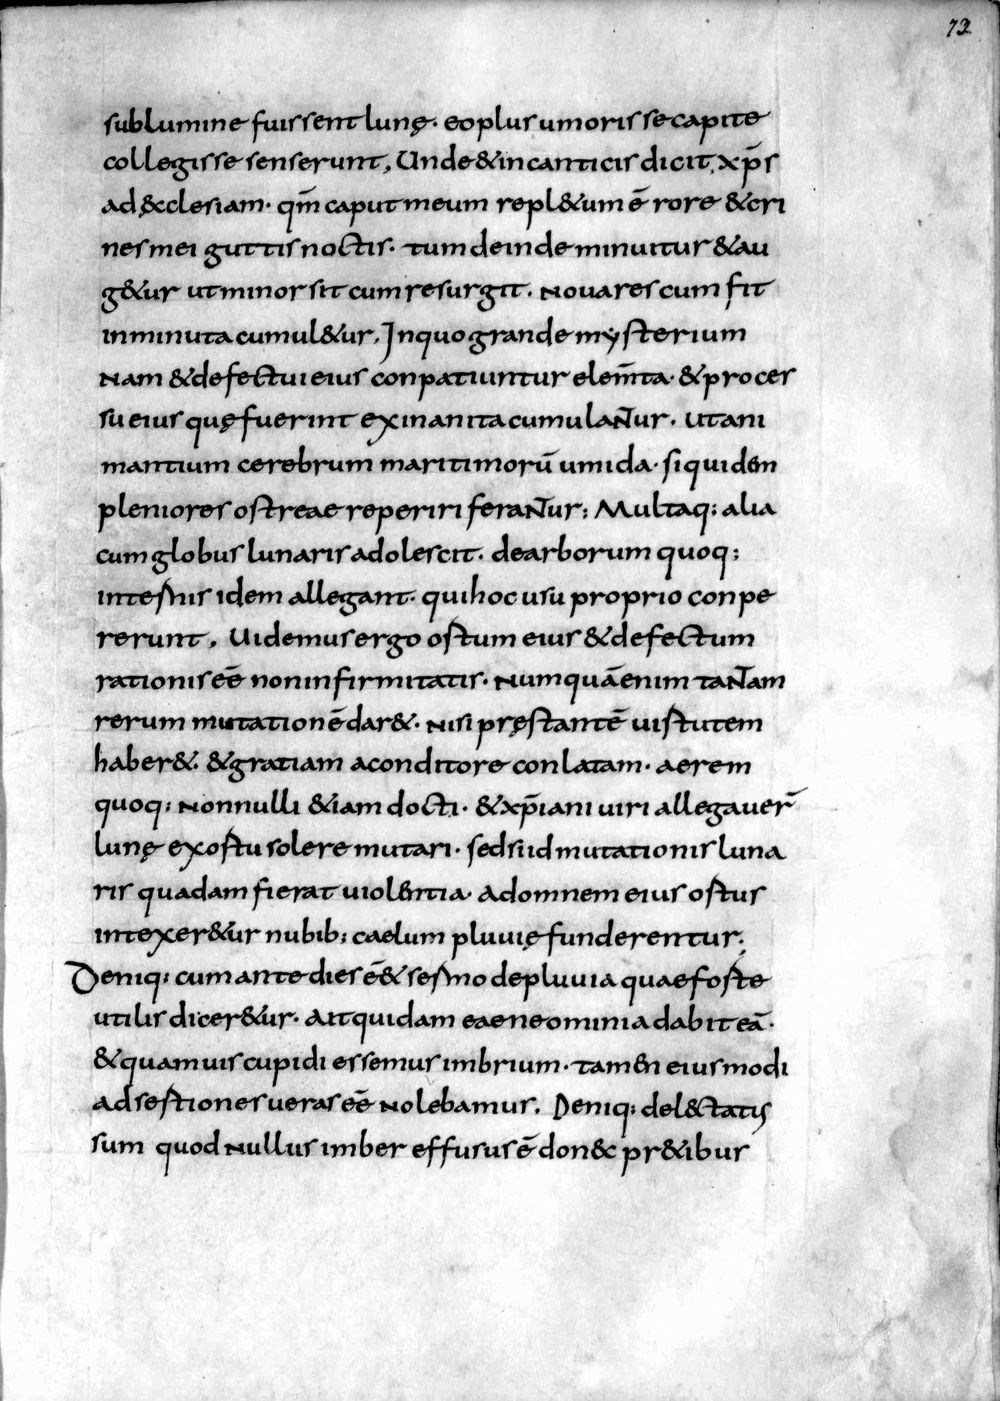 73
sub lumine fuissent lunę· eo plus umoris se capite
collegisse senserunt, Unde & in canticis dicit, xp̄s
ad ęcclesiam· qm̄ caput meum repl&um ē rore & cri
nes mei guttis noctis· tum deinde minuitur & au
g&ur ut minor sit cum resurgit. Noua res cum fit
inminuta cumul&ur, In quo grande mysterium
Nam & defectui eius conpatiuntur elem̄ta· & proces
su eius quę fuerint exinanita cumulantur. ut ani
mantium cerebrum maritimorū umida· siquidem
pleniores ostreae reperiri ferantur; Multaq; alia
cum globus lunaris adolescit. de arborum quoq;
internis idem allegant· qui hoc usu proprio conpe
rerunt, Uidemus ergo ortum eius & defectum
rationis eē non infirmitatis· Numquā enim tantam
rerum mutationē dar&· nisi pręstantē uirtutem
haber&· & gratiam a conditore conlatam· aerem
quoq; nonnulli &iam docti· & xp̄iani uiri allegauer̄
lunę exortu solere mutari· sed si id mutationis luna
ris quadam fierat uiolentia· ad omnem eius ortus
intexer&ur nubib; caelum pluuię funderentur;
Deniq; cum ante dies ē & sermo de pluuia quae forte
utilis dicer&ur· ait quidam eae neominia dabit eā·
& quamuis cupidi essemus imbrium· tamen eiusmodi
adsertiones ueras eē nolebamus. Deniq; del&ctatis
sum quod nullus imber effusus ē donec pr&ibus